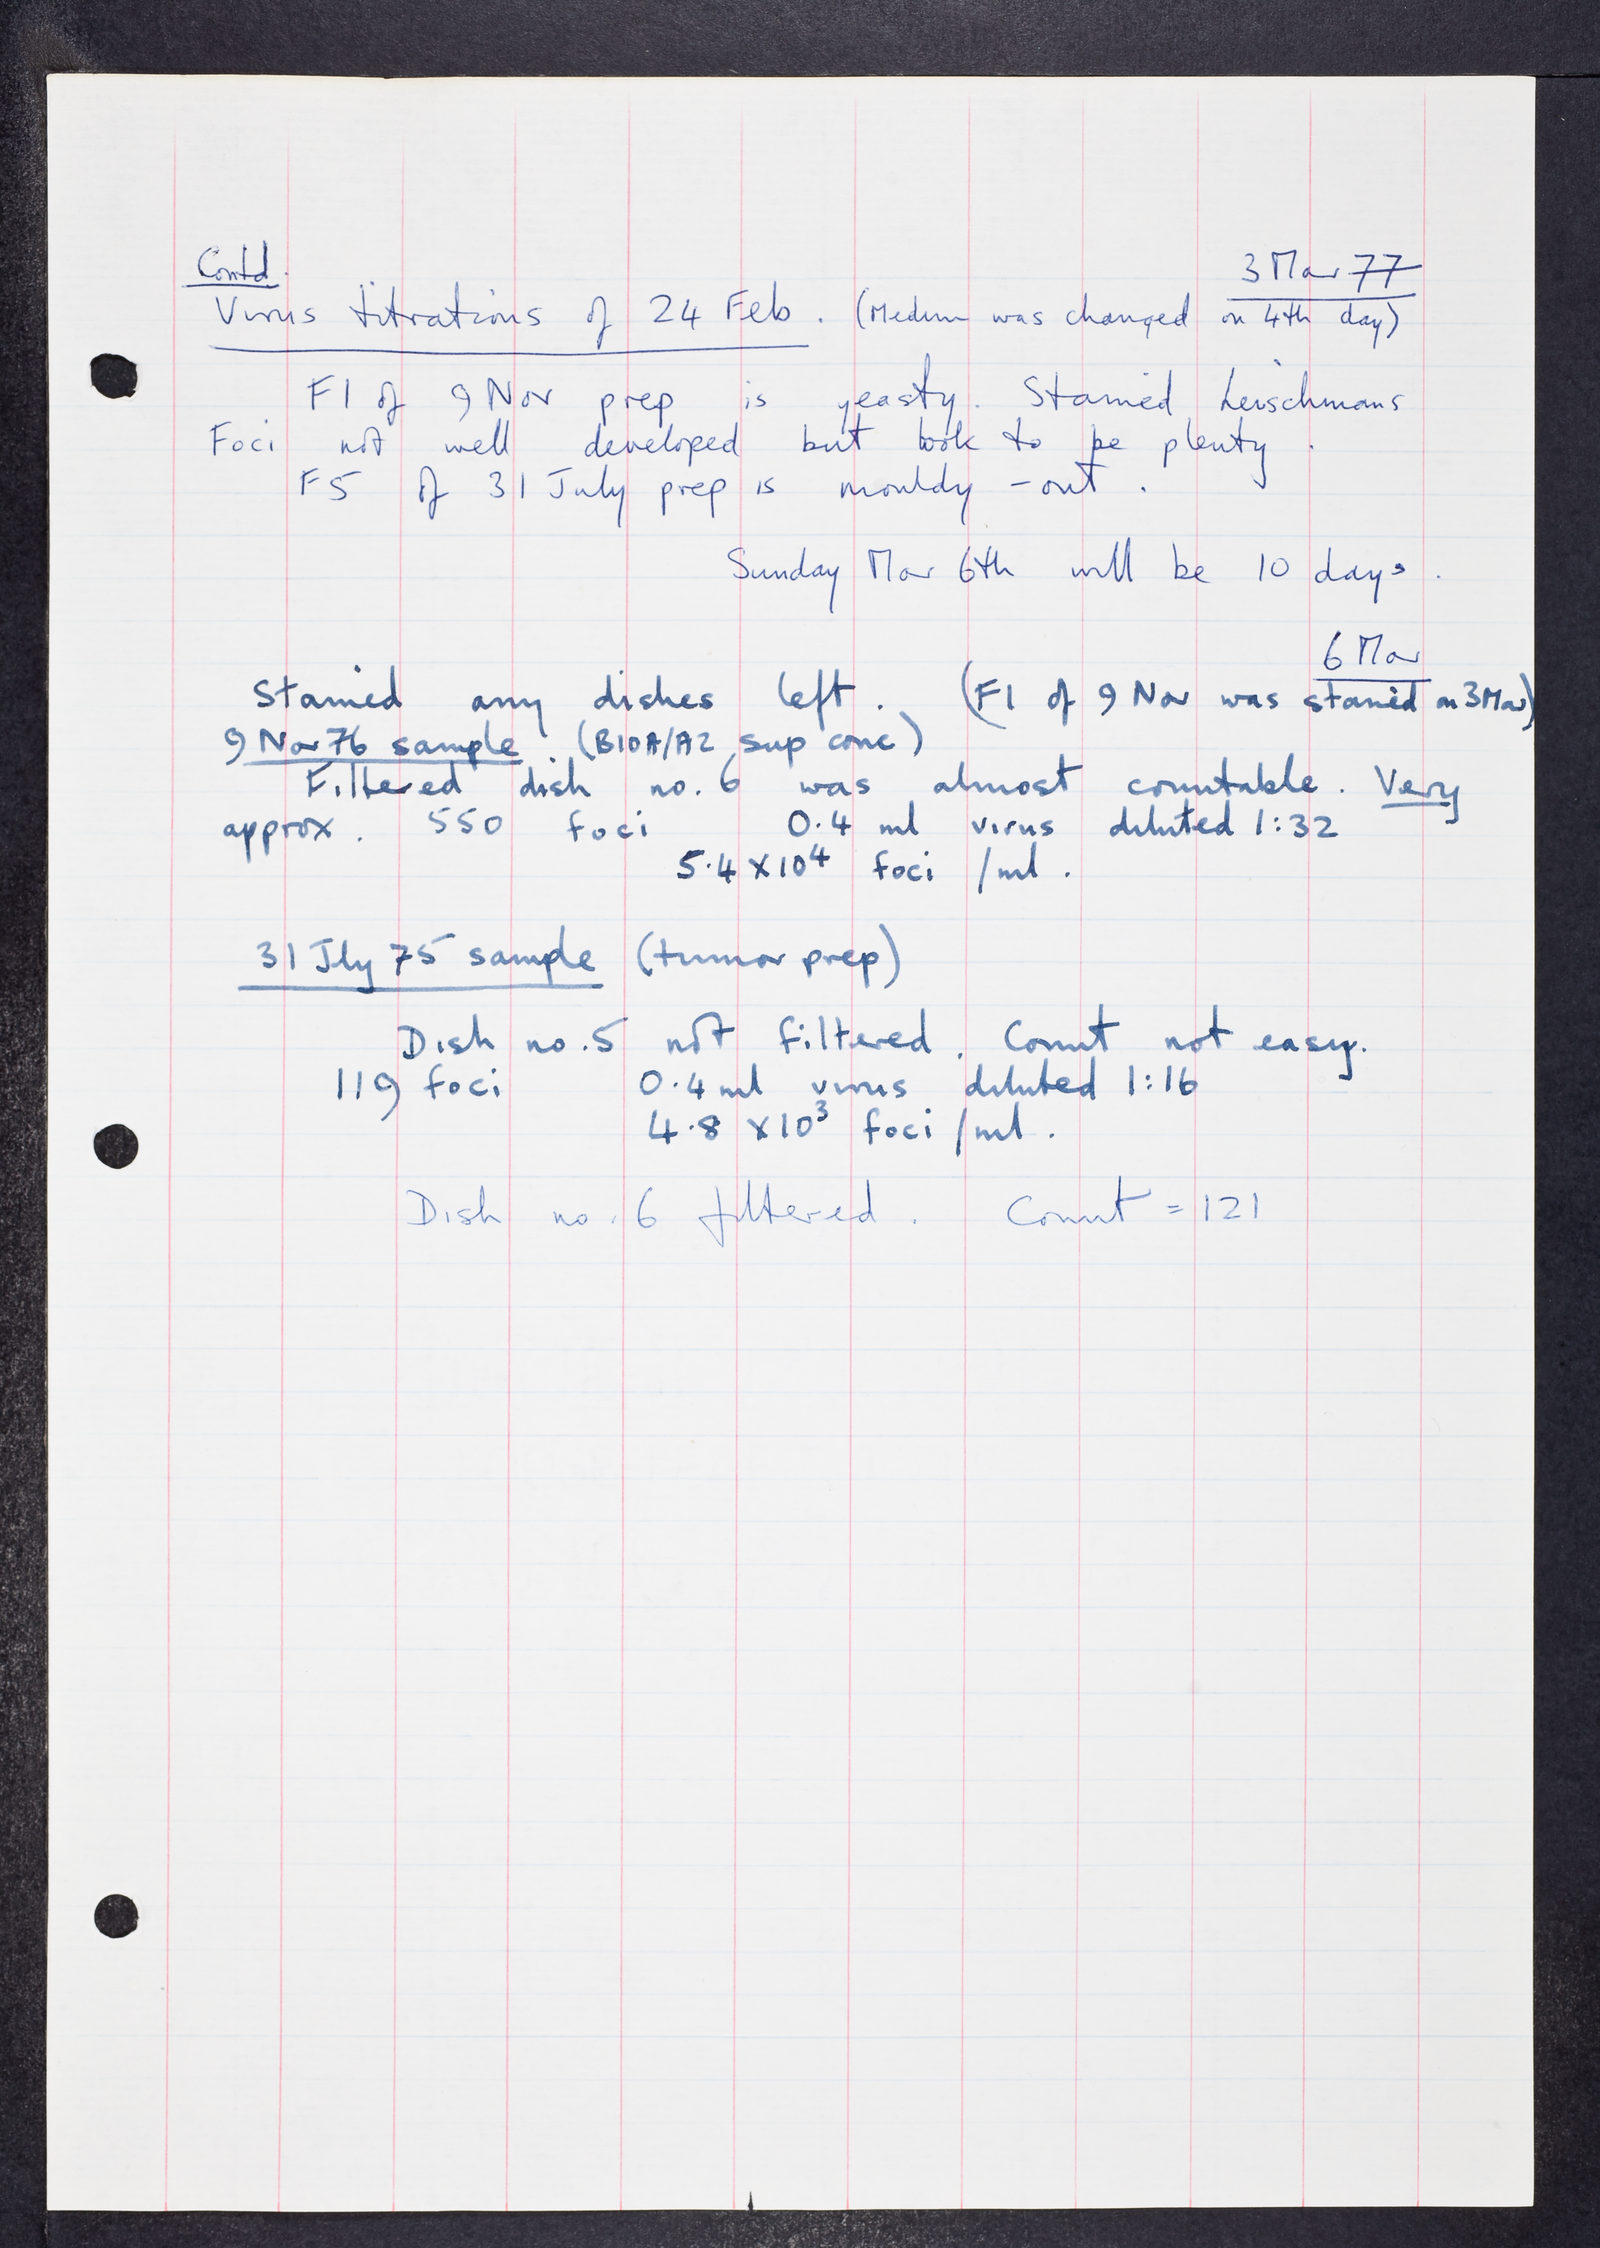 Contd.
3 Mar 77
Virus titrations of 24 Feb. (Medium was changed on 4th day)
F1 of 9 Nov prep is yeasty. Stained Leischmans
Foci not well developed but look to be plenty.
F5 of 31 July prep is mouldy - out.
Sunday Mar 6th will be 10 days.
6 Mar
Stained any dishes left. (F1 of 9 Nov was stained on 3 Mar)
9 Nov 76 sample. (B10A/A2 sup conc)
Filtered dish no. 6 was almost countable. Very
approx. 550 foci 0.4 ml virus diluted 1:32
5.4 x 10⁴ foci /ml.
31 Jly 75 sample (tumor prep)
Dish no. 5 not filtered. Count not easy.
119 foci 0.4 ml virus diluted 1:16
4.8 x 10³ foci /ml.
Dish no. 6 filtered. Count = 121